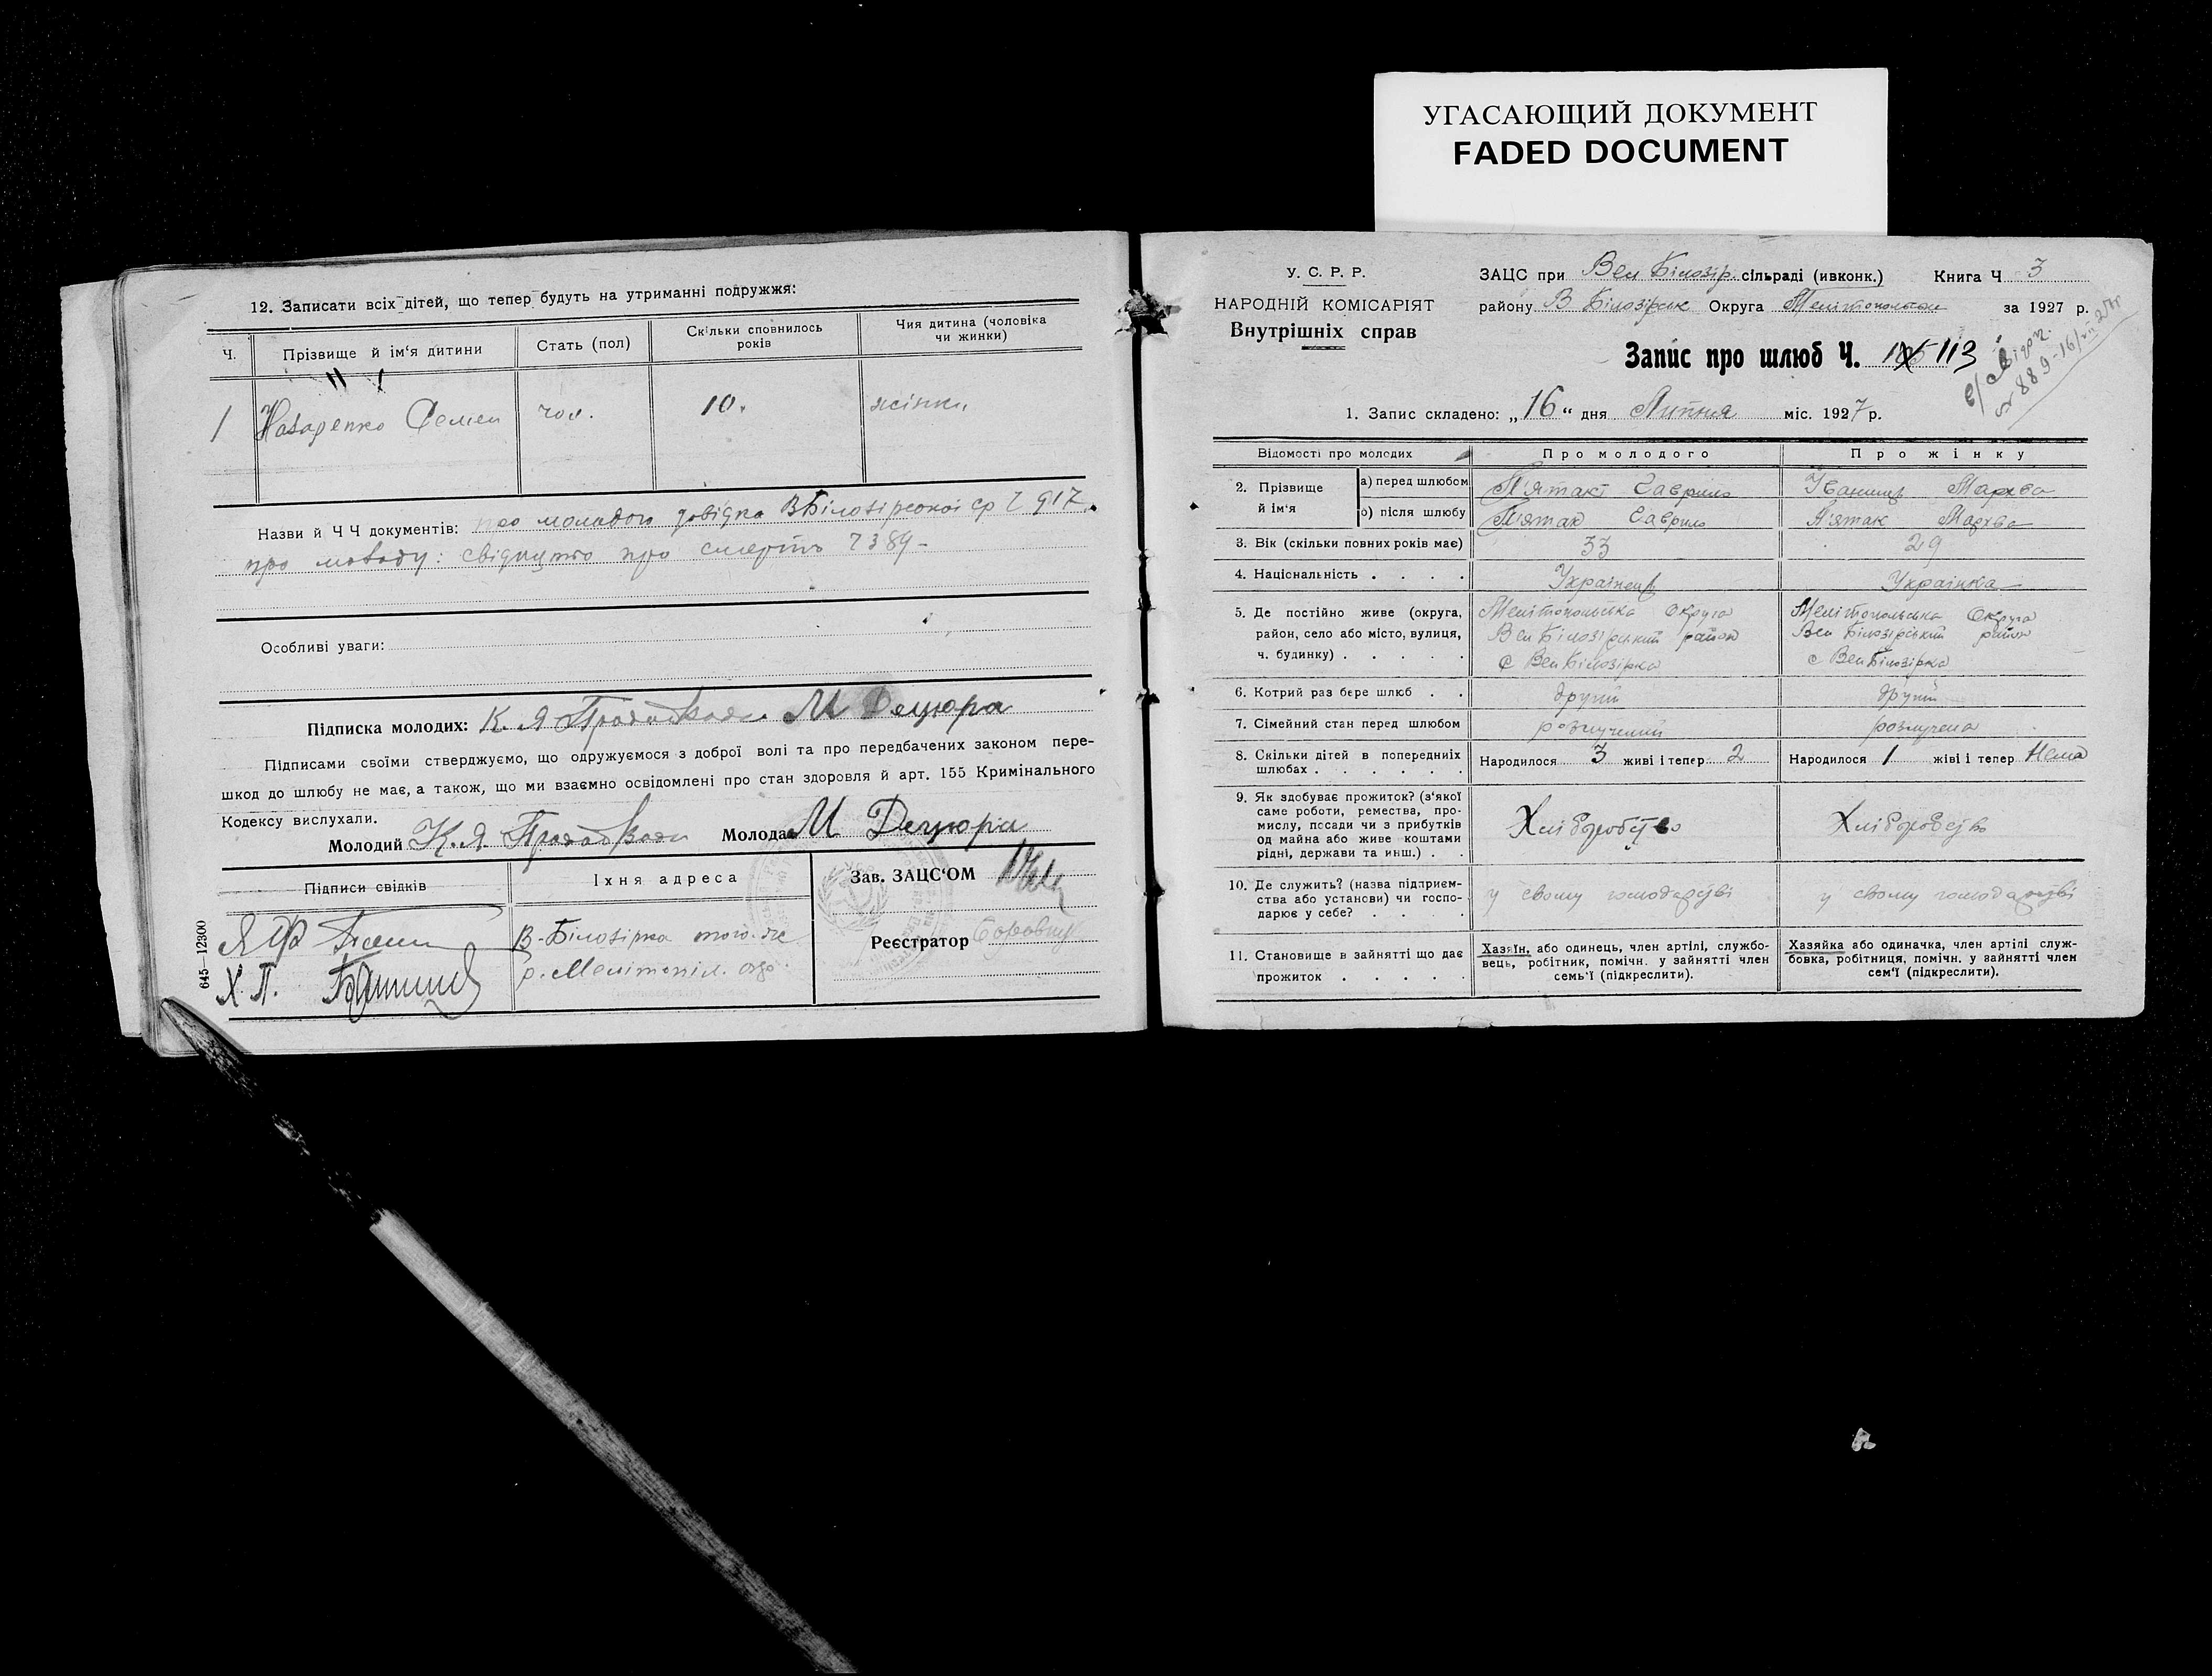 УГАСАЮЩИЙ ДОКУМЕНТ
FADED DOCUMENT
12. Записати всіх дітей, що тепер будуть на утриманні подружжя:
Ч. Прізвище й ім'я дитини Стать (пол) Скільки сповнилось років Чия дитина (чоловіка чи жинки)
1 Назаренко Семен чол. 10. жінки
Назви й Ч Ч документів: про молодого довідка ВБілозірської ср Ч 917.
про молоду: свідоцтво про смерть 7389-
Особливі уваги:
Підписка молодих: К. Я. М Децюра
Підписами своїми стверджуємо, що одружуємося з доброї волі та про передбачених законом пере-
шкод до шлюбу не має, а також, що ми взаємно освідомлені про стан здоровля й арт. 155 Кримінального
Кодексу вислухали.
Молодий К. Я. Молода М Децюра
Підписи свідків Їхня адреса Зав. ЗАЦС'ОМ
В-Білозірка того-же
р. Мелітопіл. окр.
Х. П.
Реєстратор
645—12300
У. С. Р. Р.
НАРОДНІЙ КОМІСАРІЯТ
Внутрішніх справ
ЗАЦС при Вел Білозір. сільраді (ивконк.) Книга Ч 3
району В Білозірськ Округа Мелітопольськ за 1927 р.
Запис про шлюб Ч. 105 113
№ 889-16/VII-27р
1. Запис складено: „16“ дня Липня міс. 1927 р.
Відомості про молодих Про молодого Про жінку
2. Прізвище й ім'я а) перед шлюбом П'ятак Гаврило Мархва
о) після шлюбу П'ятак Гаврило П'ятак Мархва
3. Вік (скільки повних років має) 33 29
4. Національність . . . . Українець Українка
5. Де постійно живе (округа, Мелітопольська Округа Мелітопольська Округа
район, село або місто, вулиця, Вел Білозірський район Вел Білозірський район
ч. будинку) . . . . . с Вел Білозірка с Вел Білозірка
6. Котрий раз бере шлюб . . другий другий
7. Сімейний стан перед шлюбом розлучений розлучена
8. Скільки дітей в попередніх шлюбах . . . . . . Народилося 3 живі і тепер 2 Народилося 1 жіві і тепер Нема
9. Як здобуває прожиток? (з'якої
саме роботи, ремества, про-
мислу, посади чи з прибутків
од майна або живе коштами
рідні, держави та инш.) . .
Хліборобство Хліборобство
10. Де служить? (назва підприєм-
ства або установи) чи госпо-
дарює у себе? . . . .
у свому господарстві у свому господарстві
11. Становище в зайнятті що дає
прожиток . . . .
Хазяїн, або одинець, член артілі, службо-
вець, робітник, помічн. у зайнятті член
семь'ї (підкреслити).
Хазяйка або одиначка, член артілі служ-
бовка, робітниця, помічн. у зайнятті член
сем'ї (підкреслити).